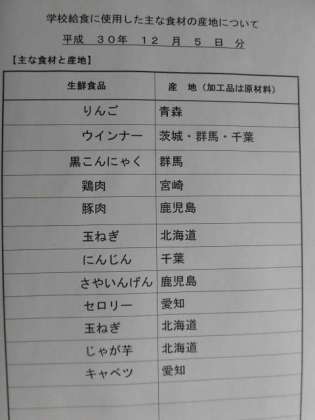 学校給食に使用した主な食材の産地について
平成 30年 12 月 5 日 分
【主な食材と産地】
生鮮食品 産 地（加工品は原材料）
りんご 青森
ウインナー 茨城・群馬・千葉
黒こんにゃく 群馬
鶏肉 宮崎
豚肉 鹿児島
玉ねぎ 北海道
にんじん 千葉
さやいんげん 鹿児島
セロリー 愛知
玉ねぎ 北海道
じゃが芋 北海道
キャベツ 愛知